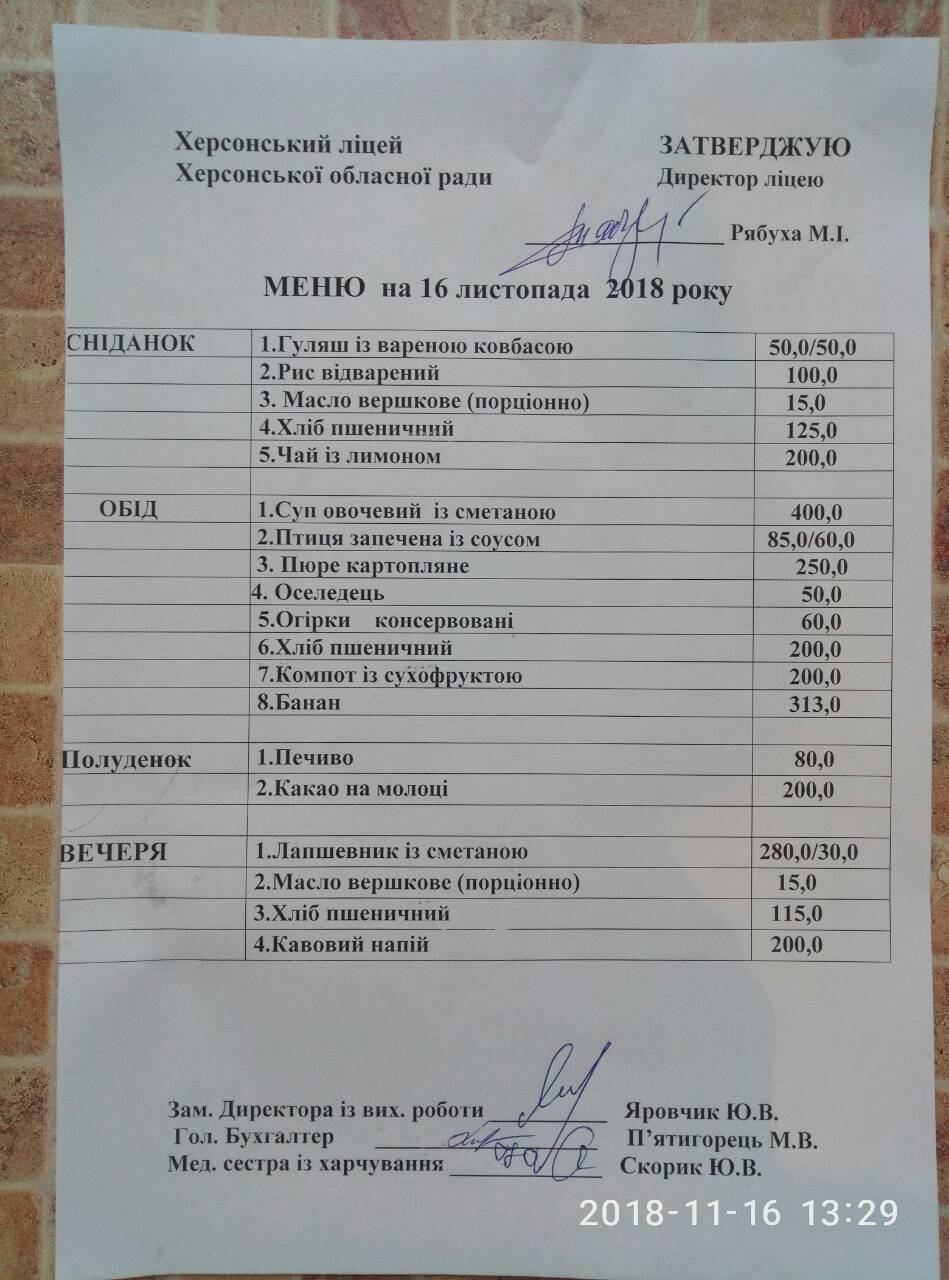 Херсонський ліцей ЗАТВЕРДЖУЮ
Херсонської обласної ради Директор ліцею
Рябуха М.І.
МЕНЮ на 16 листопада 2018 року
СНІДАНОК 1.Гуляш із вареною ковбасою 50,0/50,0
2.Рис відварений 100,0
3. Масло вершкове (порціонно) 15,0
4.Хліб пшеничний 125,0
5.Чай із лимоном 200,0
ОБІД 1.Суп овочевий із сметаною 400,0
2.Птиця запечена із соусом 85,0/60,0
3. Пюре картопляне 250,0
4. Оселедець 50,0
5.Огірки консервовані 60,0
6.Хліб пшеничний 200,0
7.Компот із сухофруктою 200,0
8.Банан 313,0
Полуденок 1.Печиво 80,0
2.Какао на молоці 200,0
ВЕЧЕРЯ 1.Лапшевник із сметаною 280,0/30,0
2.Масло вершкове (порціонно) 15,0
3.Хліб пшеничний 115,0
4.Кавовий напій 200,0
Зам. Директора із вих. роботи Яровчик Ю.В.
Гол. Бухгалтер П’ятигорець М.В.
Мед. сестра із харчування Скорик Ю.В.
2018-11-16 13:29